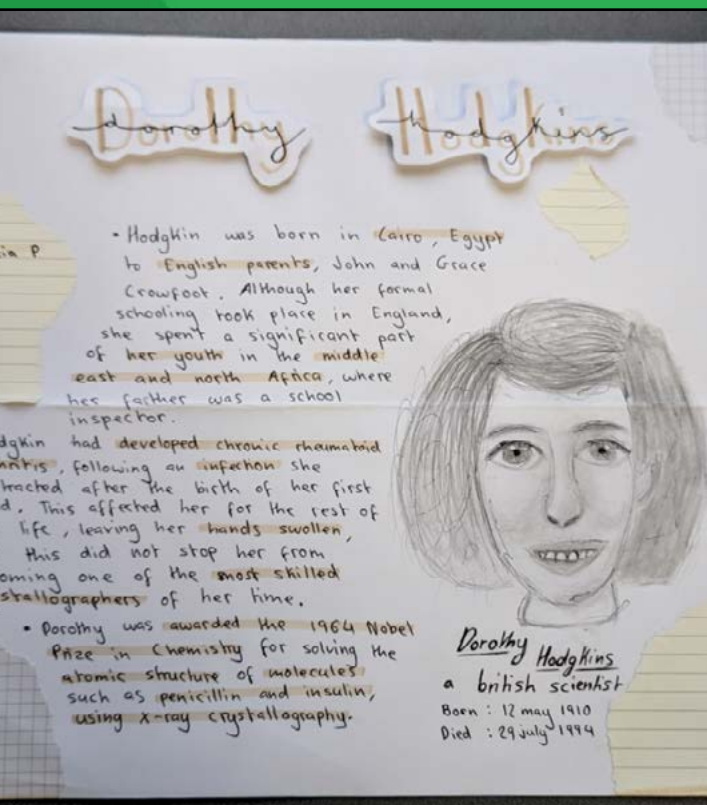 Dorothy Hodgkins
ia P
• Hodgkin was born in Cairo, Egypt
to English parents, John and Grace
Crowfoot. Although her formal
schooling took place in England,
she spent a significant part
of her youth in the middle
east and north Africa, where
her farther was a school
inspector.
dgkin had developed chronic rheumatoid
hritis, following an infection she
tracted after the birth of her first
d. This affected her for the rest of
life, leaving her hands swollen,
this did not stop her from
oming one of the most skilled
stallographers of her time.
• Dorothy was awarded the 1964 Nobel
Prize in Chemistry for solving the
atomic structure of molecules
such as penicillin and insulin,
using x-ray crystallography.
Dorothy Hodgkins
a british scientist
Born : 12 may 1910
Died : 29 july 1994